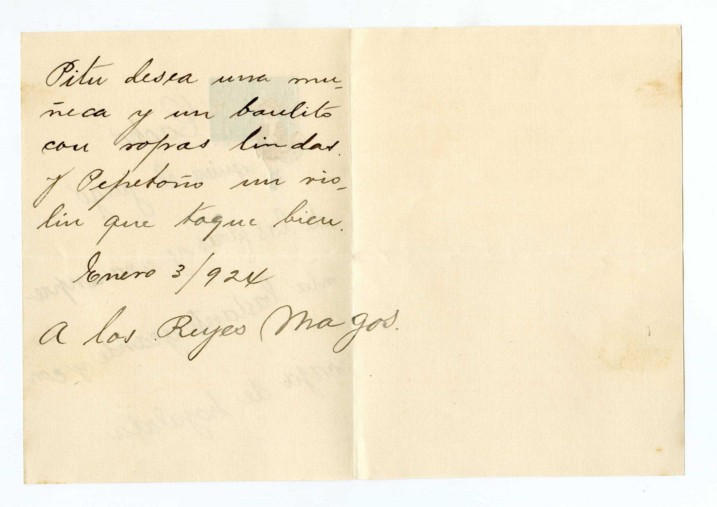 Pitu desea una mu-
ñeca y un baulito
con ropas lindas.
y Pepetoño un vio-
lin que toque bien.
Enero 3/924
A los Reyes Magos.